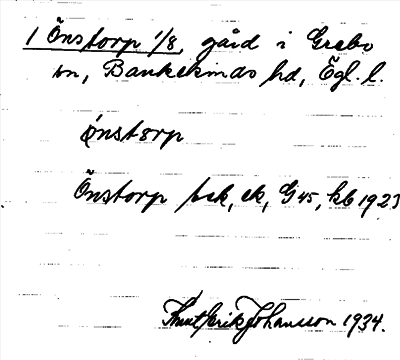 1 Önstorp 1/8, gård i Grebo
sn, Bankekinds hd, Ögl. l.
ønstørp
Önstorp bek, ek, G 45, kb 1923
Knut Erik Johansson 1934.